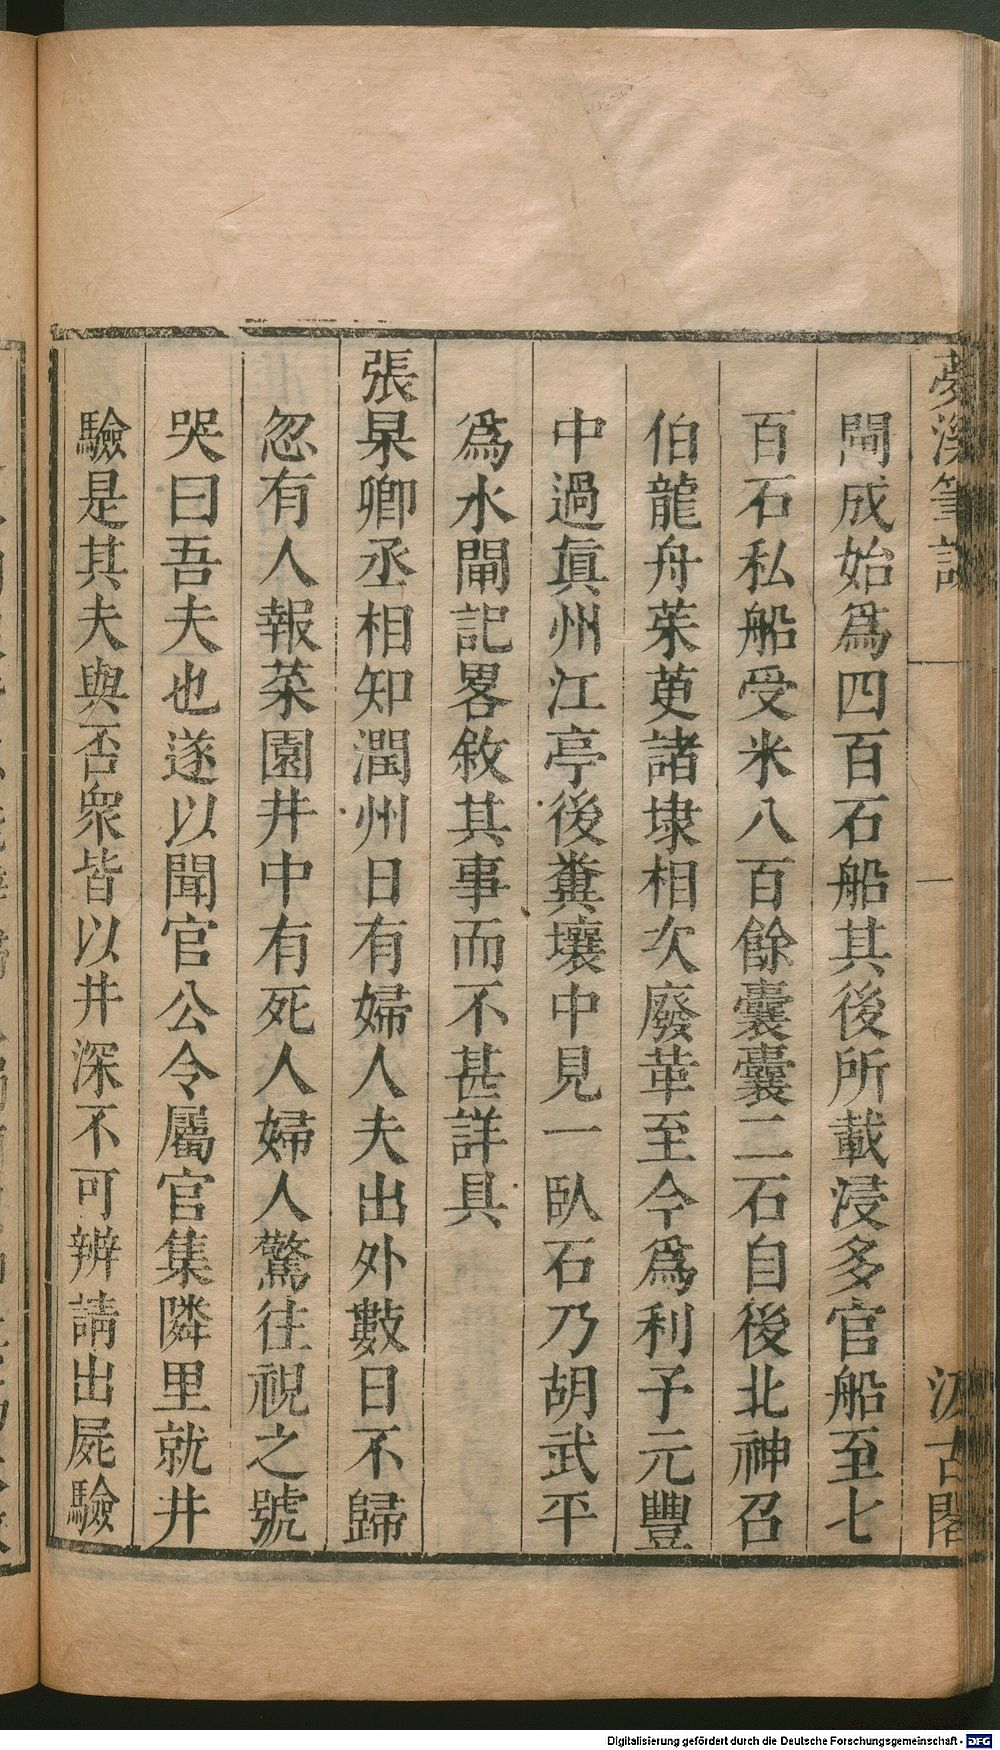 夢溪筆談
一
汲古閣
閘成始爲四百石船其後所載浸多官船至七
百石私船受米八百餘囊囊二石自後北神召
伯龍舟茱萸諸埭相次廢革至今爲利予元豐
中過眞州江亭後糞壤中見一臥石乃胡武平
爲水閘記畧敘其事而不甚詳具
張杲卿丞相知潤州日有婦人夫出外數日不歸
忽有人報菜園井中有死人婦人驚往視之號
哭曰吾夫也遂以聞官公令屬官集隣里就井
驗是其夫與否衆皆以井深不可辨請出屍驗
Digitalisierung gefördert durch die Deutsche Forschungsgemeinschaft - DFG